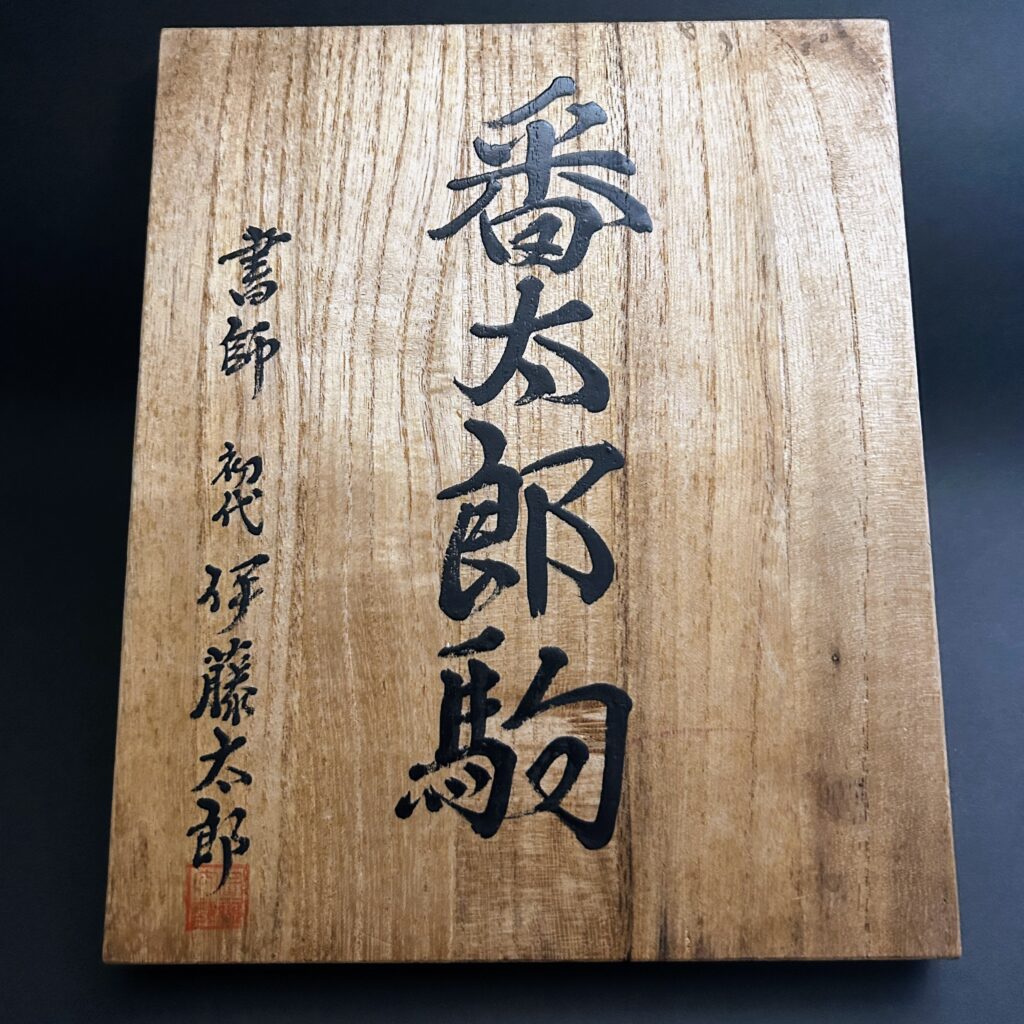 番太郎駒
書師 初代 伊藤太郎